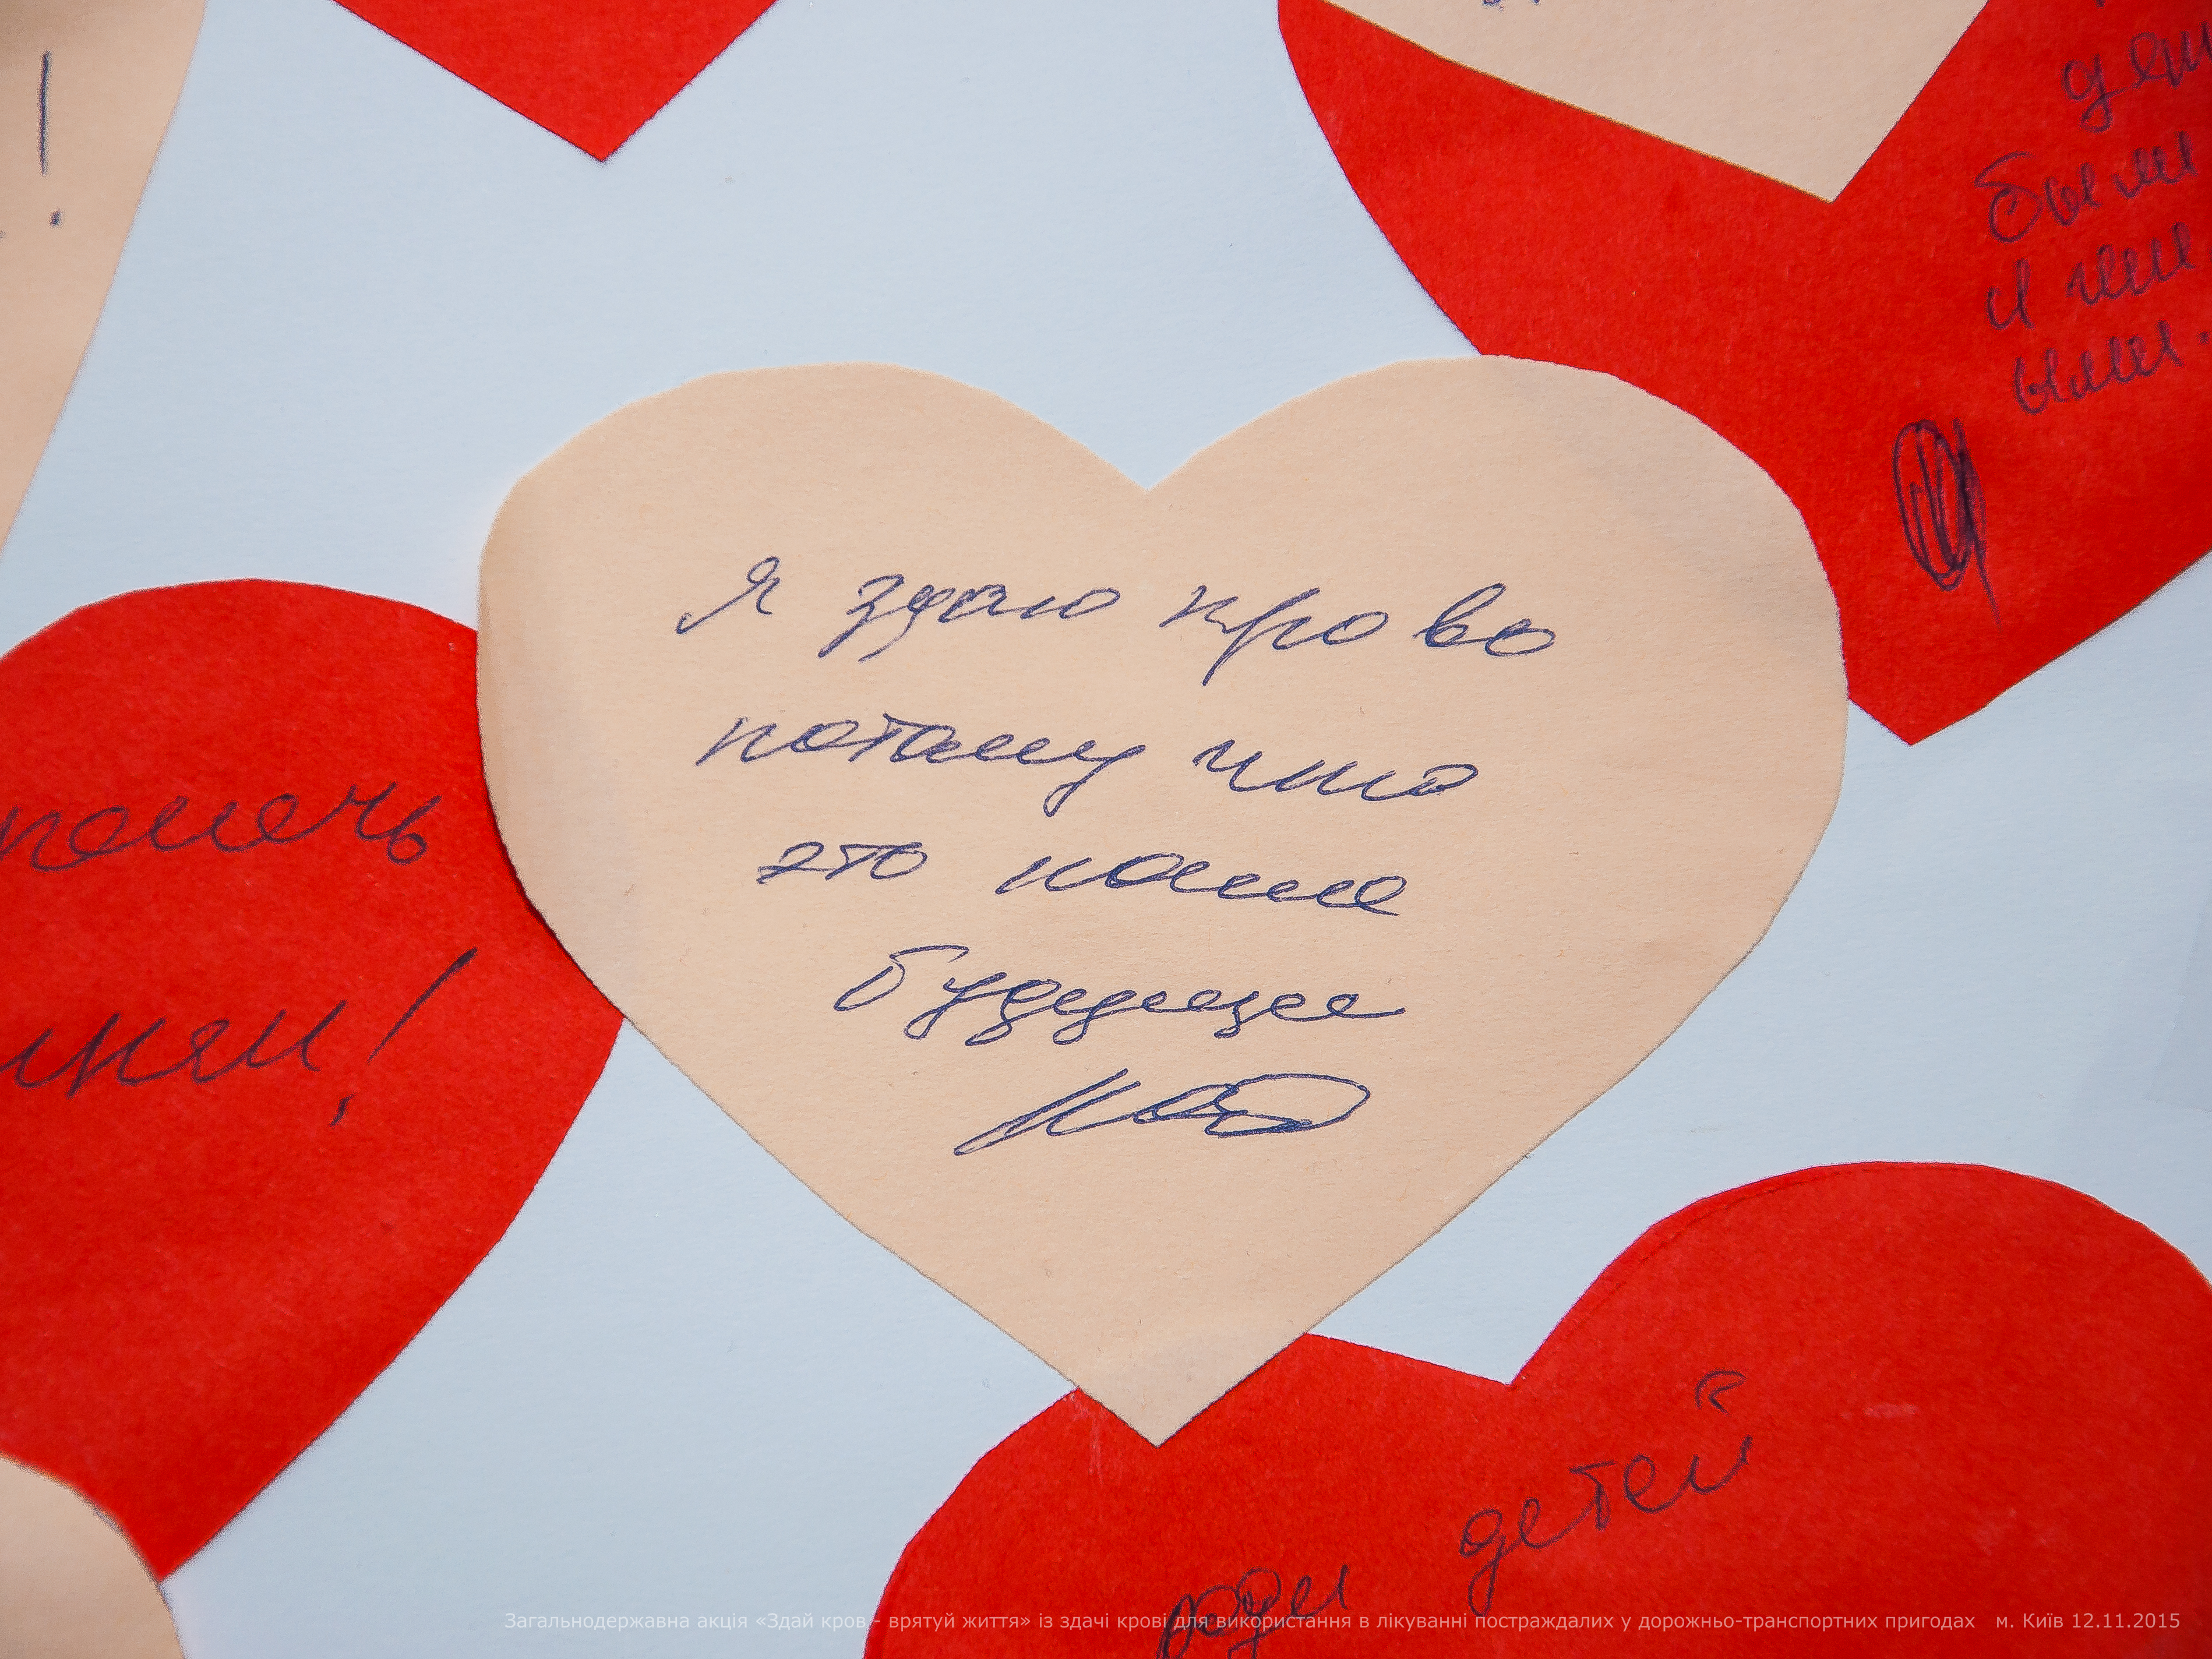 !
были
Я здаю крово
потаму что
это наше
будущее
помочь
детей
ради
Загальнодержавна акція «Здай кров - врятуй життя» із здачі крові для використання в лікуванні постраждалих у дорожньо-транспортних пригодах м. Київ 12.11.2015